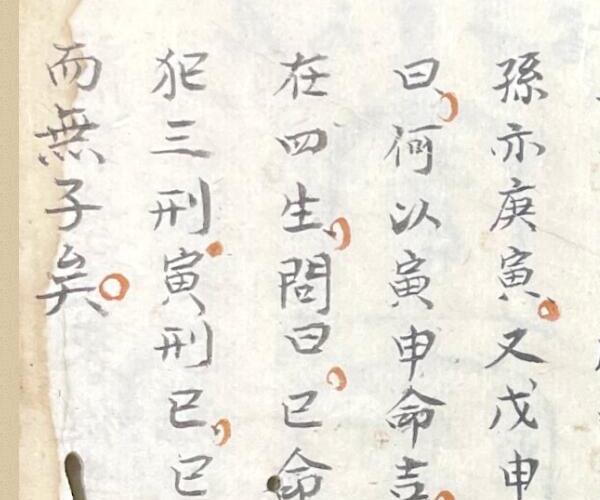 孫亦庚寅又戊申
曰何以寅申命吉
在四生問曰巳命
犯三刑寅刑巳巳
而無子矣